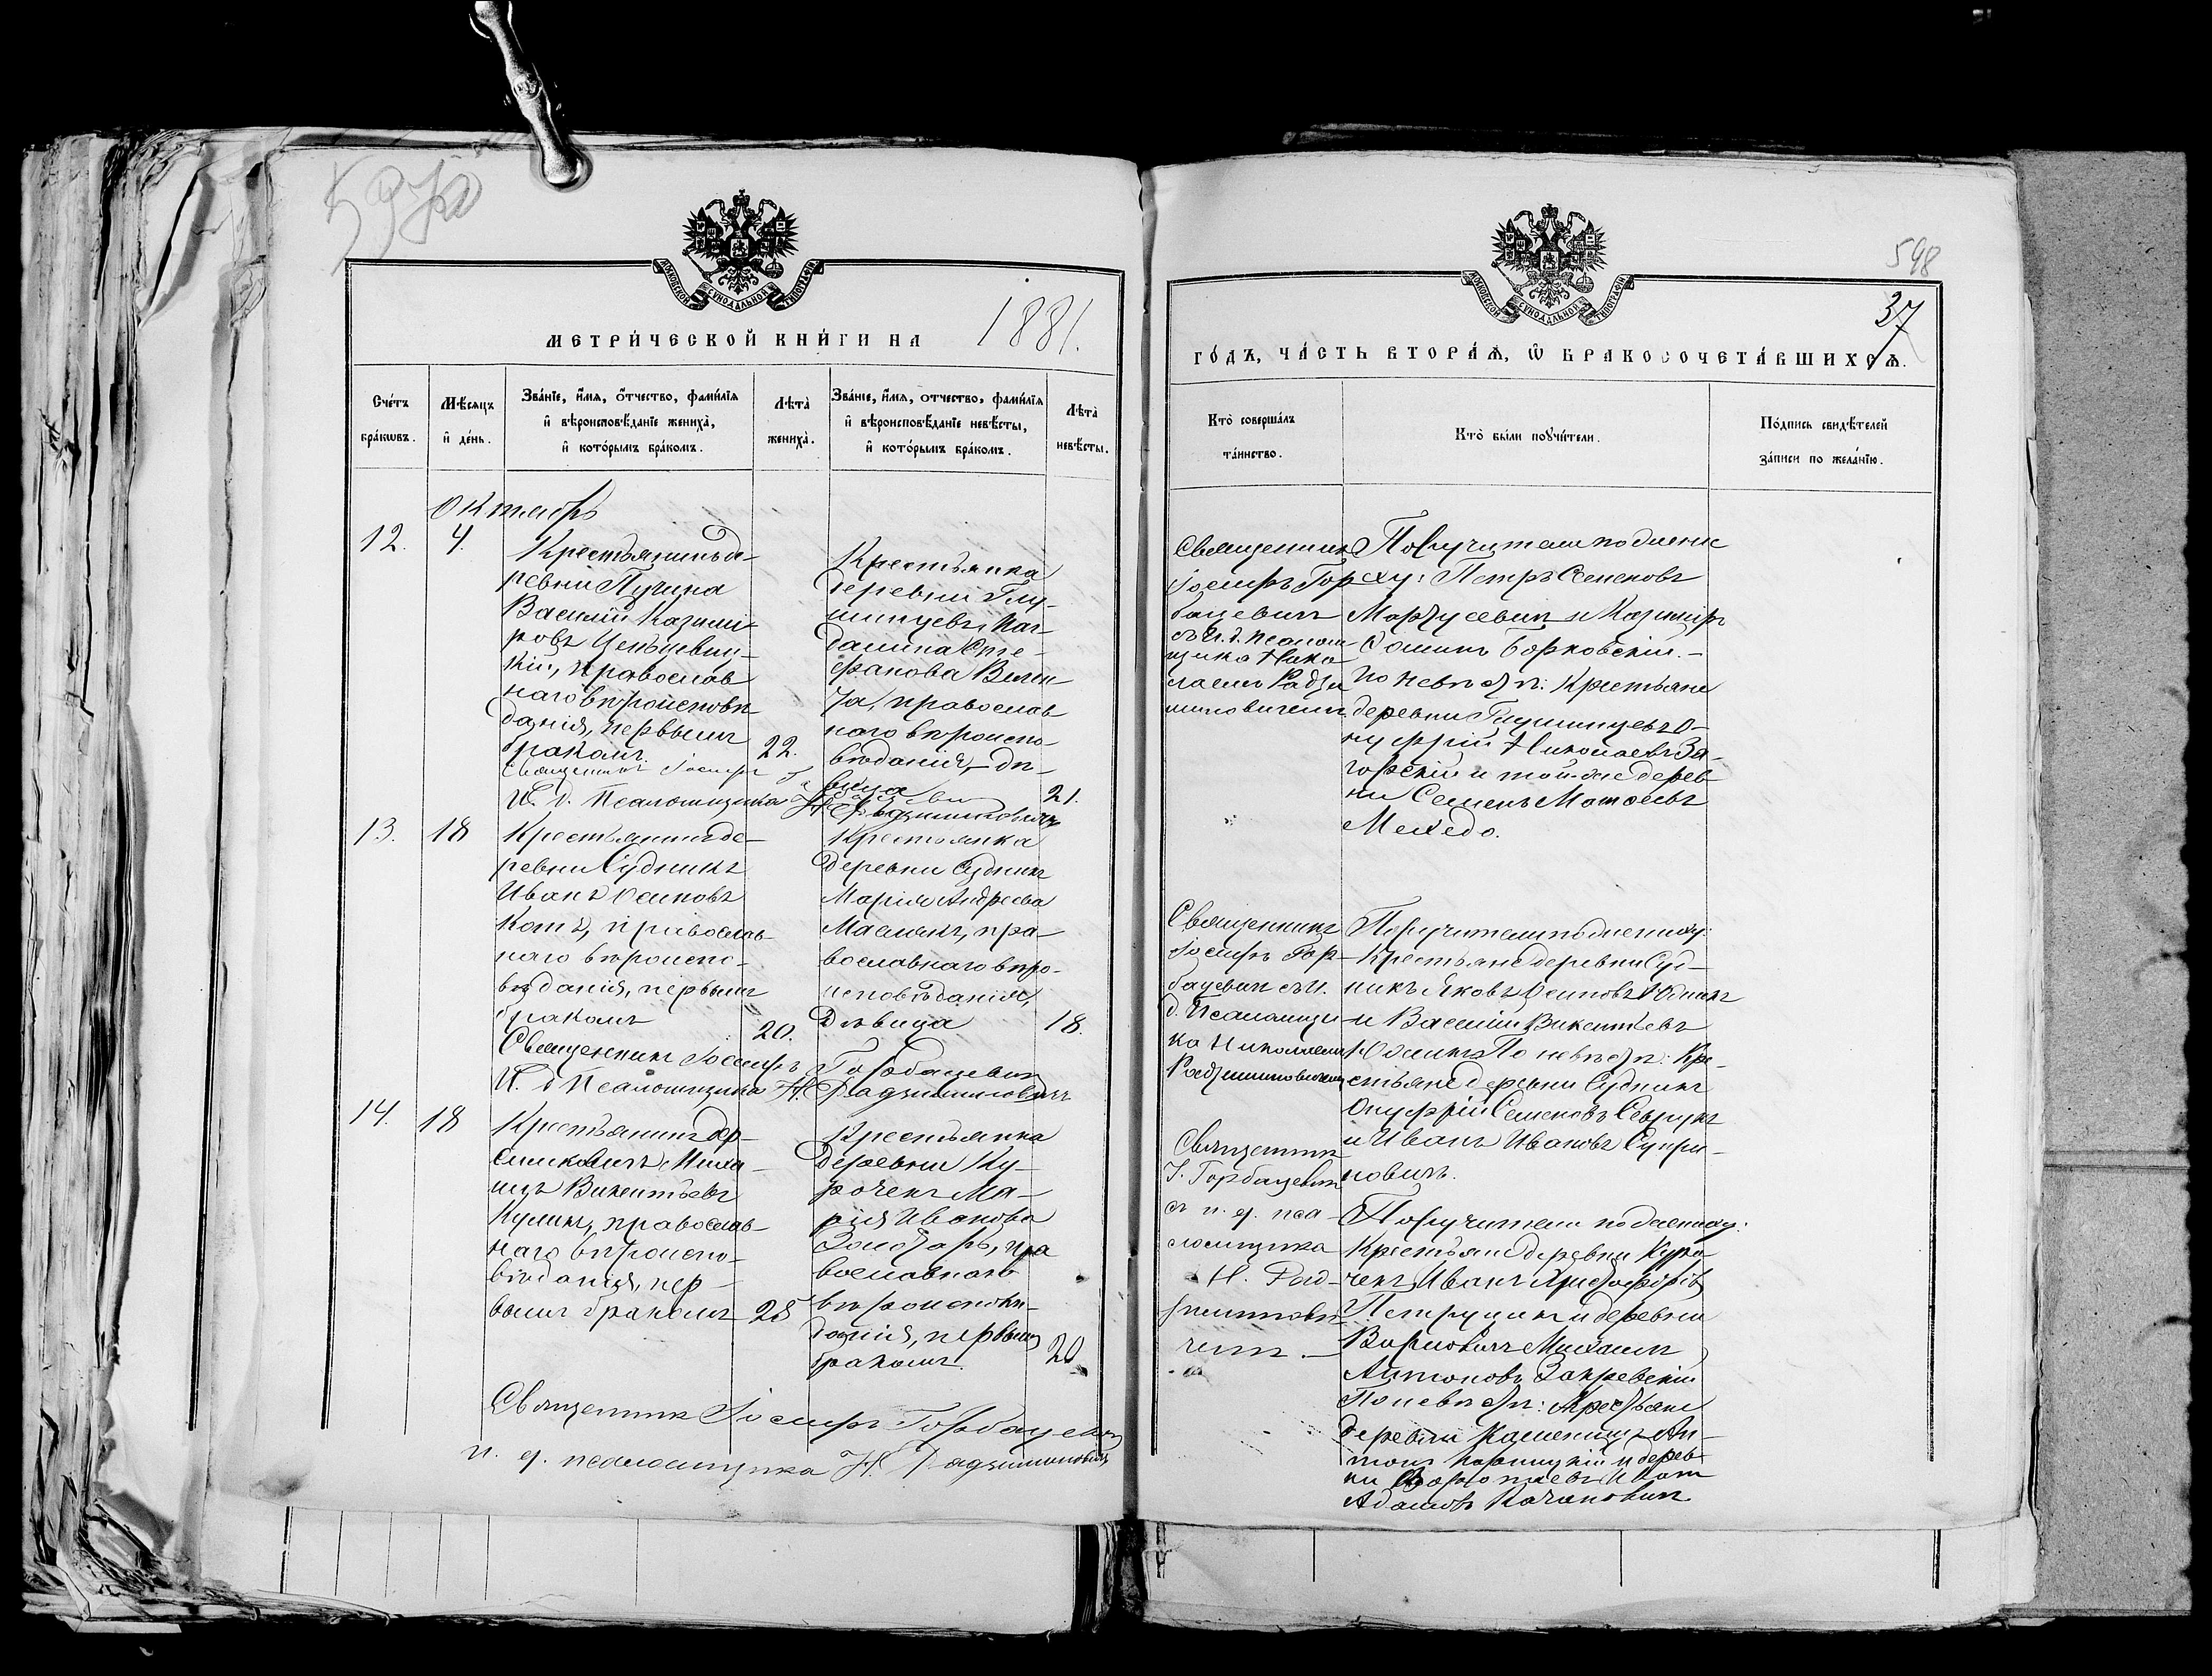 1881.
МЕТРИ́ЧЕСКОЙ КНИ́ГИ НА
МОСКОВСКОЙ СѴНОДАЛЬНОЙ ТИПОГРАФІИ
Сче́тъ бра́кωвъ.
Мѣ́сяцъ и҆ де́нь.
Зва́нїе, и҆́мя, ѻ҆́тчество, фами́лїѧ
и҆ вѣроисповѣ́данїе жениха̀,
и҆ кото́рымъ бра́комъ.
Лѣ́та̀ жениха̀.
Зва́нїе, и҆́мя, ѻ҆́тчество, фами́лїѧ
и҆ вѣроисповѣ́данїе невѣ́сты,
и҆ кото́рымъ бра́комъ.
Лѣ́та̀ невѣ́сты.
Октябрь
12.
4.
Крестьянинъ де-
ревни Пучина
Василій Казими-
ровъ
кій, православ
наго вѣроисповѣ
данія, первымъ
бракомъ.
22.
Священникъ Іосифъ
И. д. Псаломщика Н. Радзиминовичъ
Крестьянка
деревни Глу-
шинцевъ Маг-
далина Сте-
фанова
православ
наго вѣроиспо-
вѣданія, дѣ-
вица
21.
13.
18
Крестьянинъ де-
ревни Судникъ
Иванъ Осиповъ
Котъ, православ-
наго вѣроиспо-
вѣданія, первымъ
бракомъ
20.
Крестьянка
деревни Судникъ
Марія Андреева
Маслякъ, пра-
вославнаго вѣро-
исповѣданія,
Дѣвица
18.
Священникъ Іосифъ Горбацевичъ
И. д. Псаломщика Н. Радзиминовичъ
14.
18
Крестьянинъ
Миха-
илъ Викентьевъ
Куликъ, православ-
наго вѣроиспо-
вѣданія, пер-
вымъ бракомъ
25
Крестьянка
Деревни Ку-
роченъ Ма-
рія Иванова
Золотарь, пра
вославнаго
вѣроисповѣ-
данія, первымъ
бракомъ.
20
Священникъ Іосифъ Горбацевичъ
и. д. псаломщика Н. Радзиминовичъ
598
37
МОСКОВСКОЙ СѴНОДАЛЬНОЙ ТИПОГРАФІИ
ГО́ДЪ, ЧА́СТЬ ВТОРА́Ѧ, Ѽ БРАКОСОЧЕТА́ВШИХСѦ.
Кто̀ соверша́лъ
та́инство.
Кто̀ бы́ли порꙋчи́тели.
По́дпись свидѣ́телей
за́писи по жела́нїю.
Священникъ
Іосифъ Гор
бацевичъ
съ И. д. Псалом
щика Нико
лаемъ Радзи
миновичемъ
Поручители по жени-
ху: Петръ Семеновъ
Матусевичъ и Казиміръ
Борковскій.-
По невѣстѣ: Крестьяне
деревни Глушинцевъ О-
нуфрій Николаевъ За-
горскій и той-же дерев
ни Семенъ Матѳеевъ
Мехедо.
Священникъ
Іосифъ Гор-
бацевичъ съ И.
д. Псаломщи-
ка Николаемъ
Радзиминовичемъ
Поручители по жениху:
Крестьяне деревни Суд-
никъ Яковъ Осиповъ
и Василій Викентьевъ
По невѣстѣ: Кре-
стьяне деревни Судникъ
Онуфрій Семеновъ Севрукъ
и Иванъ Ивановъ Супри-
новичъ.
Священникъ
І. Горбацевичъ
съ и. д. пса-
ломщика
Н. Рад-
зиминови-
чемъ.
Поручители по жениху:
Крестьяне деревни Куро-
ченъ Иванъ Христофоровъ
и деревни
Михаилъ
Антоновъ Закревскій
По невѣстѣ: Крестьяне
деревни Каменицъ Ан-
тонъ и дерев-
ни
Адамовъ Качановичъ.